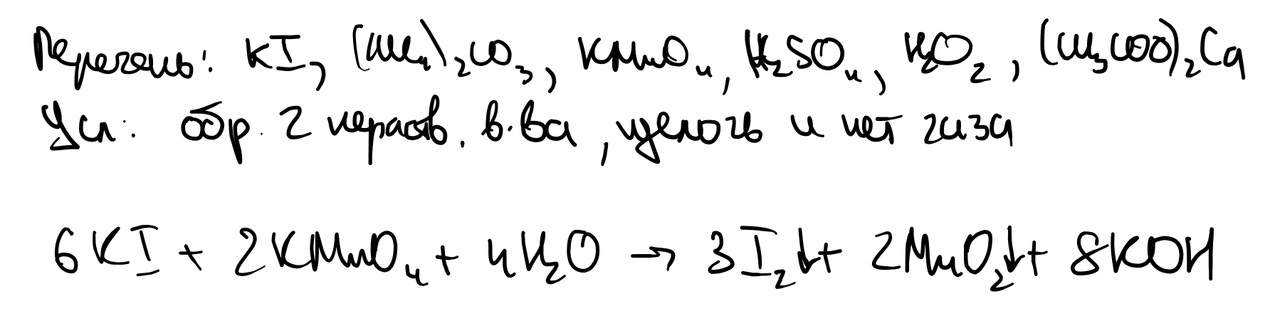 Перечень: KI, (NH₄)₂CO₃, KMnO₄, H₂SO₄, H₂O₂, (CH₃COO)₂Ca
Усл: обр. 2 нераств. в-ва, щелочь и нет газа
6KI + 2KMnO₄ + 4H₂O → 3I₂↓ + 2MnO₂↓ + 8KOH